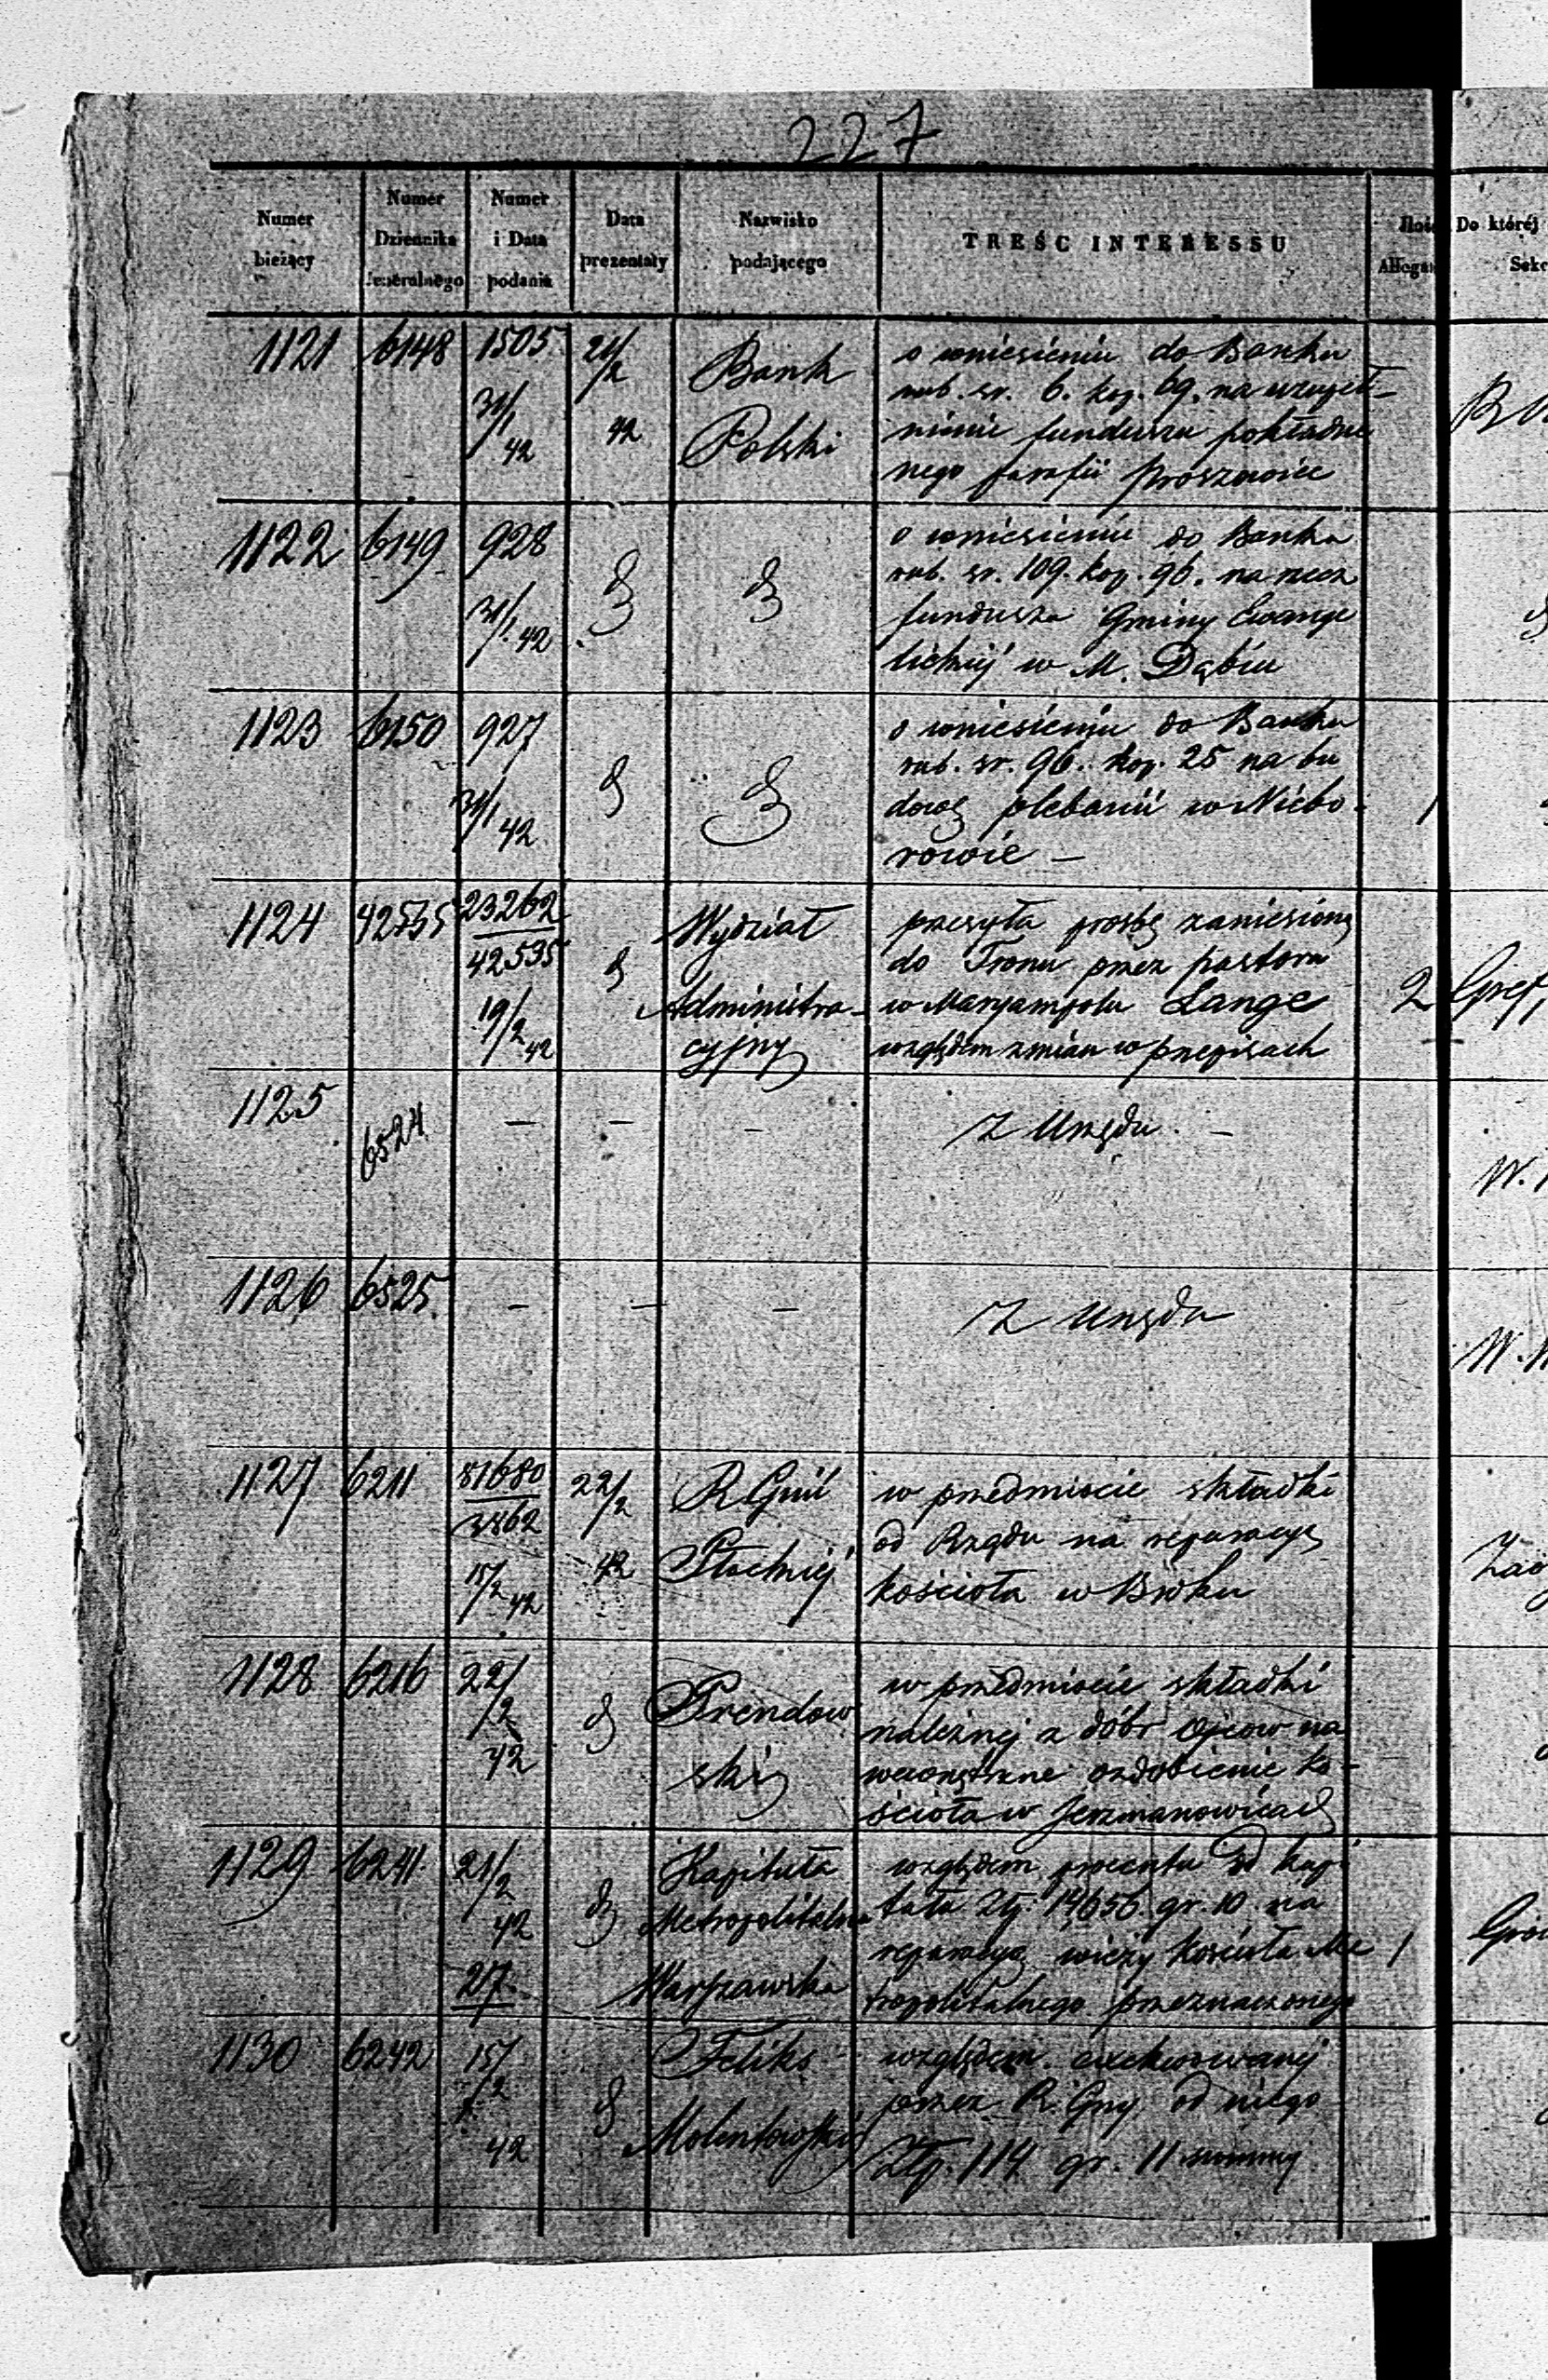 227
Numer bieżący
Numer Dziennika Jeneralnego
Numer i Data podania
Data prezentaty
Nazwisko podającego
TREŚĆ INTERESSU
Ilość Allegat
Do któréj Sekc
1121 6148 1505 31/1 42 21/2 42 Bank Polski
o wniesieniu do Banku
rub. sr. 6. kop. 69. na uzupeł-
nienie funduszu pokładne
nego parafii Proszowice
1122 6149 928 31/1 42
o wniesieniu do Banku
rub. sr. 109. kop. 96. na rzecz
funduszu Gminy Ewange
lickiej w M. Dąbiu
1123 6150 927 31/1 42
o wniesieniu do Banku
rub. sr. 96. kop. 25 na bu
dowę plebanii w Niebo-
rowie — 1
1124 42535 23262 42535 19/2 42 Wydział Administra-cyjny
przesyła prosbę zaniesioną
do Tronu przez pastora
w Maryampolu Lange 2
względem zmian w przepisach
1125 6524 — — — Z Urzędu. —
1126 6525 — — — Z Urzędu
1127 6211 81680 3862 15/2 42 22/2 42 R. Gub. Płockiej
w przedmiocie składki
od Rządu na reparacyę
kościoła w Broku
1128 6216 22/2 42 Prendowski
w przedmiocie składki
należnej z dóbr Ojcow na
wewnętrzne ozdobienie ko-
ścioła w Jerzmanowicach
1129 6241 21/2 42 27. Kapituła Metropolitalna Warszawska
względem procentu od kapi
tału Złp. 14656. gr. 10. na
reparacyę wieży kościoła Me 1
tropolitalnego przeznaczonego
1130 6242 15/2 42 Feliks
względem exekwowanej
przez R. Gny. od niego
Złp. 114 gr. 11 summy